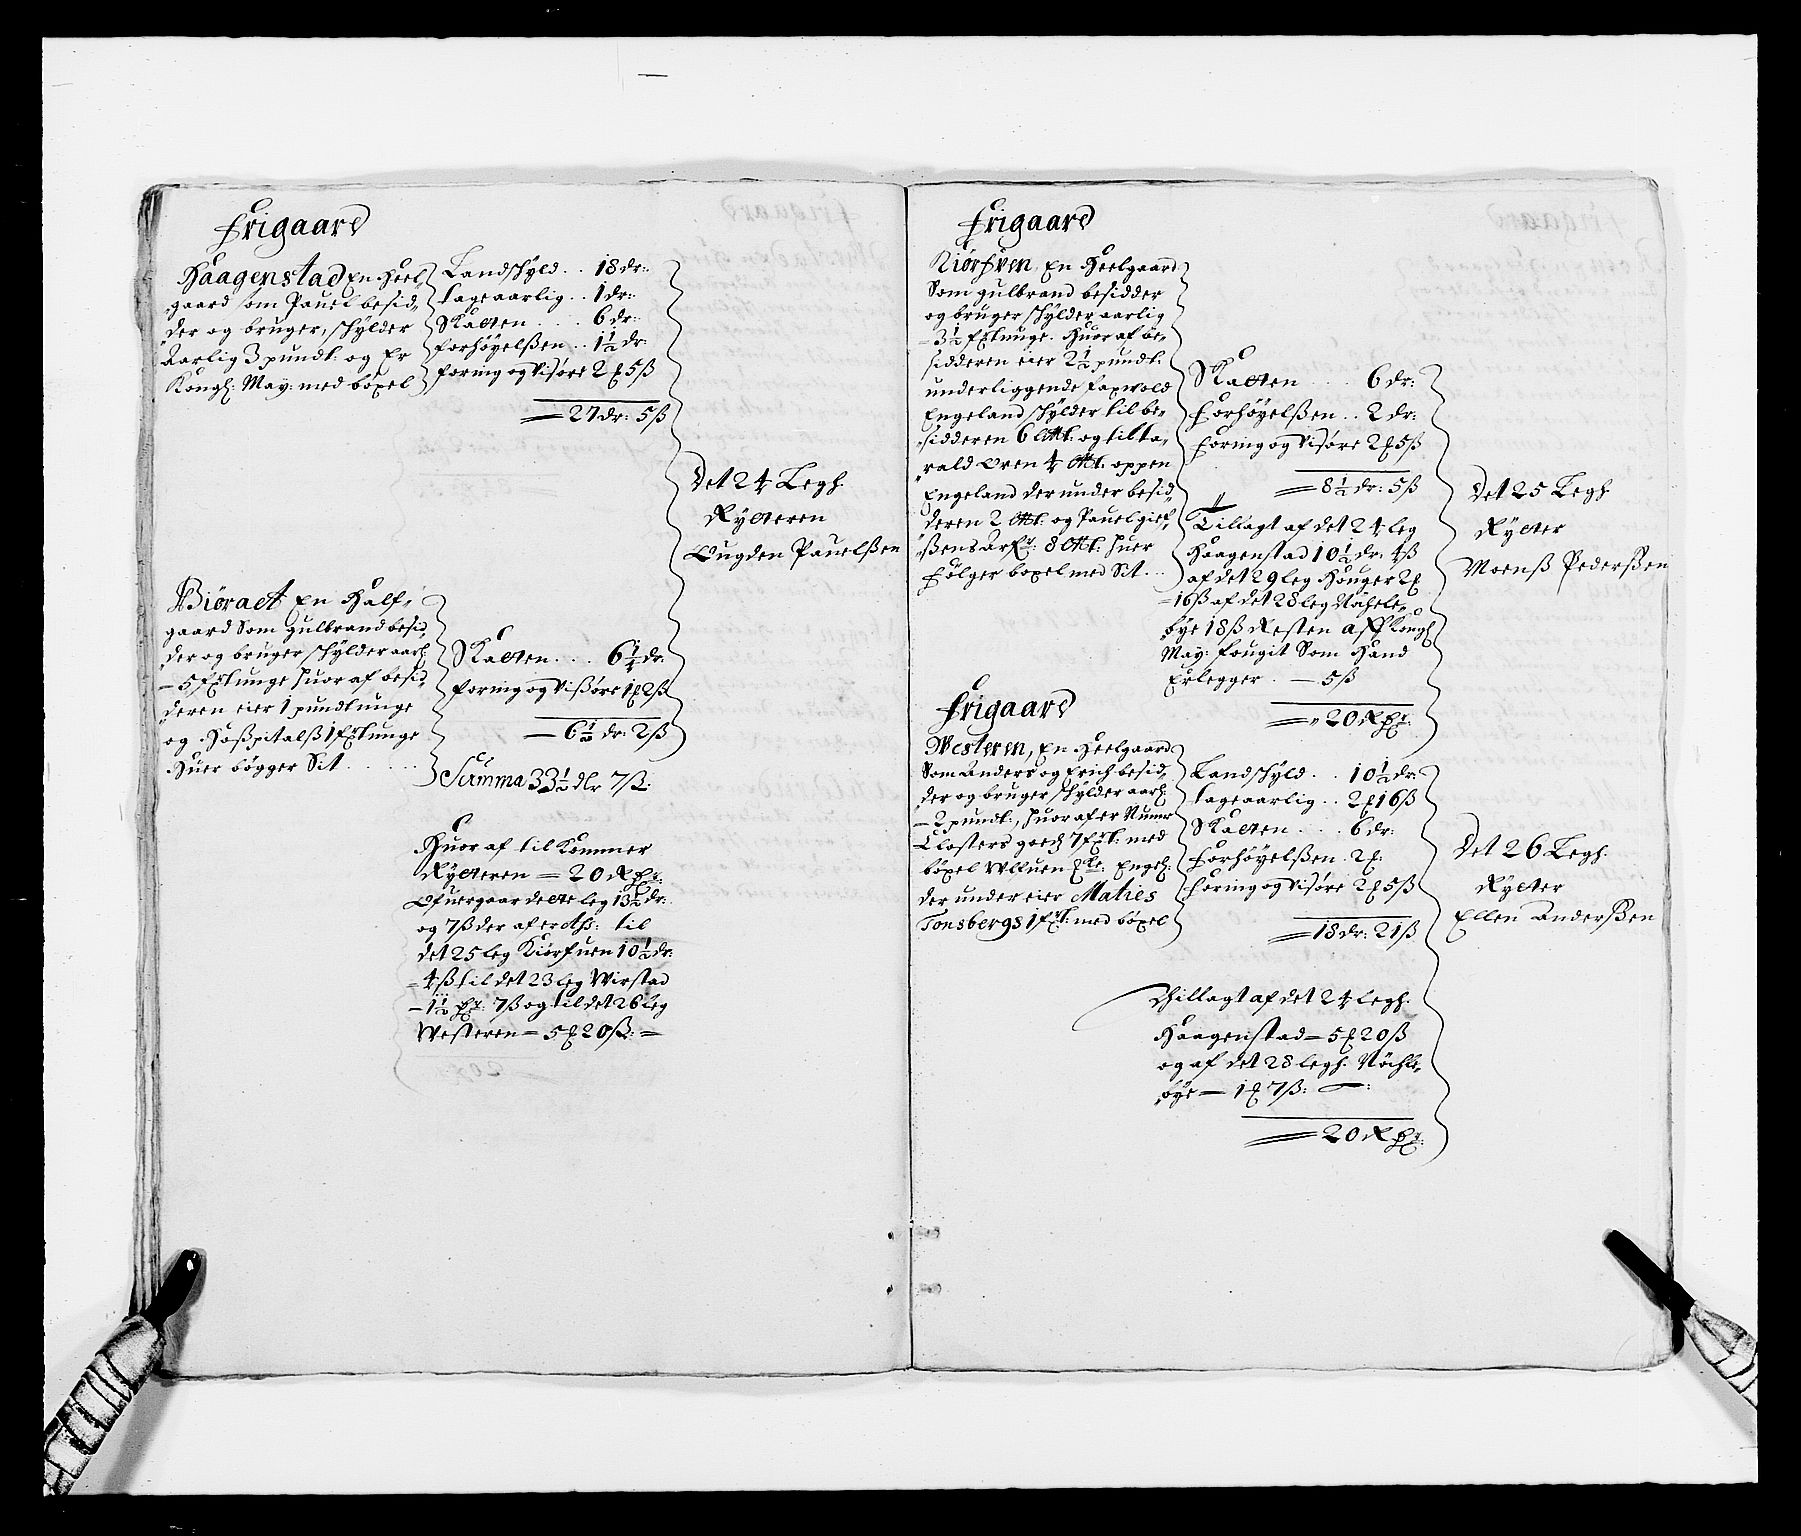 Frigaard
Haagenstad En Heel,
gaard som Pauel besid,
der og bruger, skylder
Aarlig 3 pundt: og Er
Kongl: May: med böxel
Landskyld .. 18 dr:
tageaarlig .. 1 dr:
Skatten .... 6 dr:
forhöyelßen .. 1½ dr:
foring og Visöre 2 5ß
27 dr: 5ß
Det 24 Legh
Rytteren
Ougden Pauelßen
Biöraet En Half,
gaard Som gulbrand besid,
der og bruger skylder aarl:
5 hunge huor af besid,
deren eier 1 pundt unge
og Hoßpitalß 1 unge
Huer bögger Sit .....
Skatten ... 6¼ dr:
foring og Vißöre 1 2ß
6½ dr: 2ß
Summa 33½ dlr 7ß:
Huor af til Kommer
Rytteren = 20 R
Ofuergaar dette leg 13½ dr:
og 7ß der af er til
det 25 leg Kiörfuen 10½ dr:
4ß til det 23 leg Wirstad
1½ 7ß og til det 26 leg
Westeren = 5 20ß: =
Frigaard
Kiörfven, En Heelgaard
Som gulbrand besidder
og bruger skylder aarlig
3½ unge. Huor af be,
sidderen eier 2½ pundt:
underliggende faxwold
Engeland skylder til be,
sidderen 6 og til ta,
rald oren 4 oppen
Engeland der under besid,
deren 2 og Pauel gief,
ßens 8 huer
fölger boxel med Sit ..
Skatten .... 6 dr:
Forhöyelßen .. 2 dr:
foring og Visöre 2 5ß
8½ dr: 5ß
Tillagt af det 24 leg
Haagenstad 10½ dr: 4ß
af det 29 leg Houger 2
16ß af det 28 leg Nöchele,
bye 18ß Resten aff Kongl
May: fougit Som Hand
Erlegger . — 5ß
20 R
Det 25 Legh
Rytter
Moenß Pederßen
Frigaard
Westeren, En Heelgaard
Som Anders og Erich besid,
der og bruger skylder aarl:
2 pundt:, huor af er Numer
Closters goedz 7 med
böxel Engel:
der under eier Maties
Tonsbergs 1 med böxel
Landskyld .. 10½ dr:
tageaarlig .. 2 16ß
Skatten .... 6 dr:
forhöyelßen . 2
foring og Visöre 2 5ß
18 dr: 21ß
Det 26 Legh:
Rytter
Ellen Anderßen
Thillagt af det 24 legh:
Haagenstad = 5 20ß
og af det 28 legh: Nöchle,
bye — 1 7ß: —
20 R